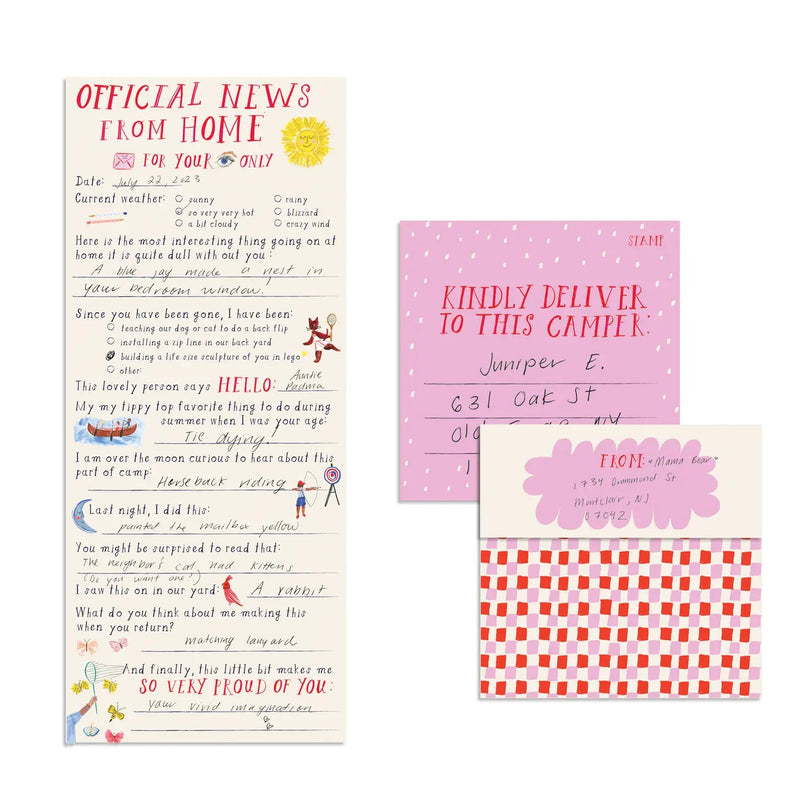 OFFICIAL NEWS
FROM HOME
FOR YOUR ONLY
Date: July 22, 2023
Current weather: sunny rainy
so very very hot blizzard
a bit cloudy crazy wind
Here is the most interesting thing going on at
home it is quite dull with out you:
A blue jay made a nest in
your bedroom window!
Since you have been gone, I have been:
teaching our dog or cat to do a back flip
installing a zip line in our back yard
building a life size sculpture of you in lego
other:
This lovely person says HELLO: Auntie Padma
My my tippy top favorite thing to do during
summer when I was your age:
Tie dying!
I am over the moon curious to hear about this
part of camp: Horseback riding
Last night, I did this:
painted the mailbox yellow
You might be surprised to read that:
The neighbor's cat had kittens
(Do you want one?)
I saw this on in our yard: A rabbit
What do you think about me making this
when you return?
matching lanyard
And finally, this little bit makes me
SO VERY PROUD OF YOU:
your vivid imagination
STAMP
KINDLY DELIVER
TO THIS CAMPER:
Juniper E.
631 Oak St
FROM: *Mama Bear*
1734 Drummond St
Montclair, NJ
07042